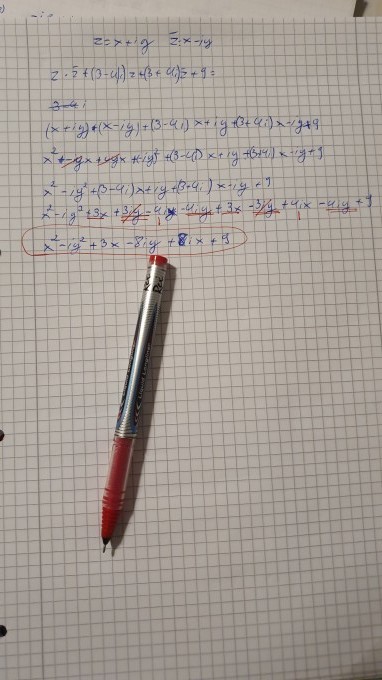 z=x+iy z̄=x-iy
z·z̄+(3-4i)z+(3+4i)z̄+9=
3-4i
(x+iy)+(x-iy)+(3-4i)x+iy+(3+4i)x-iy+9
x²-iyx+iyx+(iy)²+(3-4i)x+iy+(3+4i)x-iy+9
x²-iy²+(3-4i)x+iy+(3+4i)x-iy+9
x²-iy²+3x+3iy-4ix-4iy+3x-3iy+4ix-4iy+9
x²-iy²+3x-8iy+8ix+9